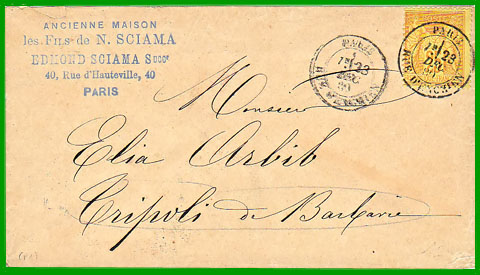 ANCIENNE MAISON
les Fils de N. SCIAMA
EDMOND SCIAMA Succr
40, Rue d'Hauteville, 40
PARIS
PARIS
23
DEC
90
R. D'ENGHIEN
PARIS
23
DEC
90
R. D'ENGHIEN
Monsieur
Elia Arbib
Tripoli de Barbarie